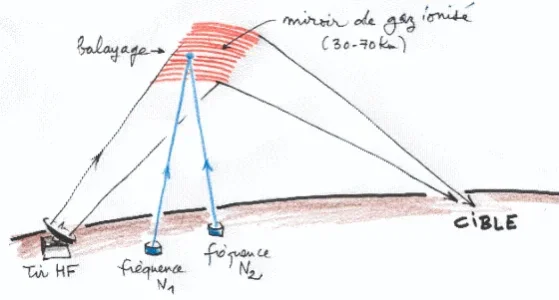 miroir de gaz ionisé
(30-70 Km)
balayage
CIBLE
Tir HF
fréquence
N1
fréquence
N2